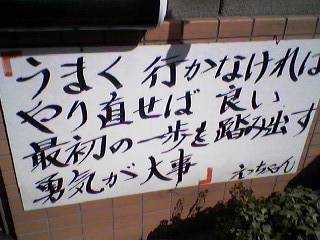 「うまく行かなければ
やり直せば良い
最初の一歩を踏み出す
勇気が大事」